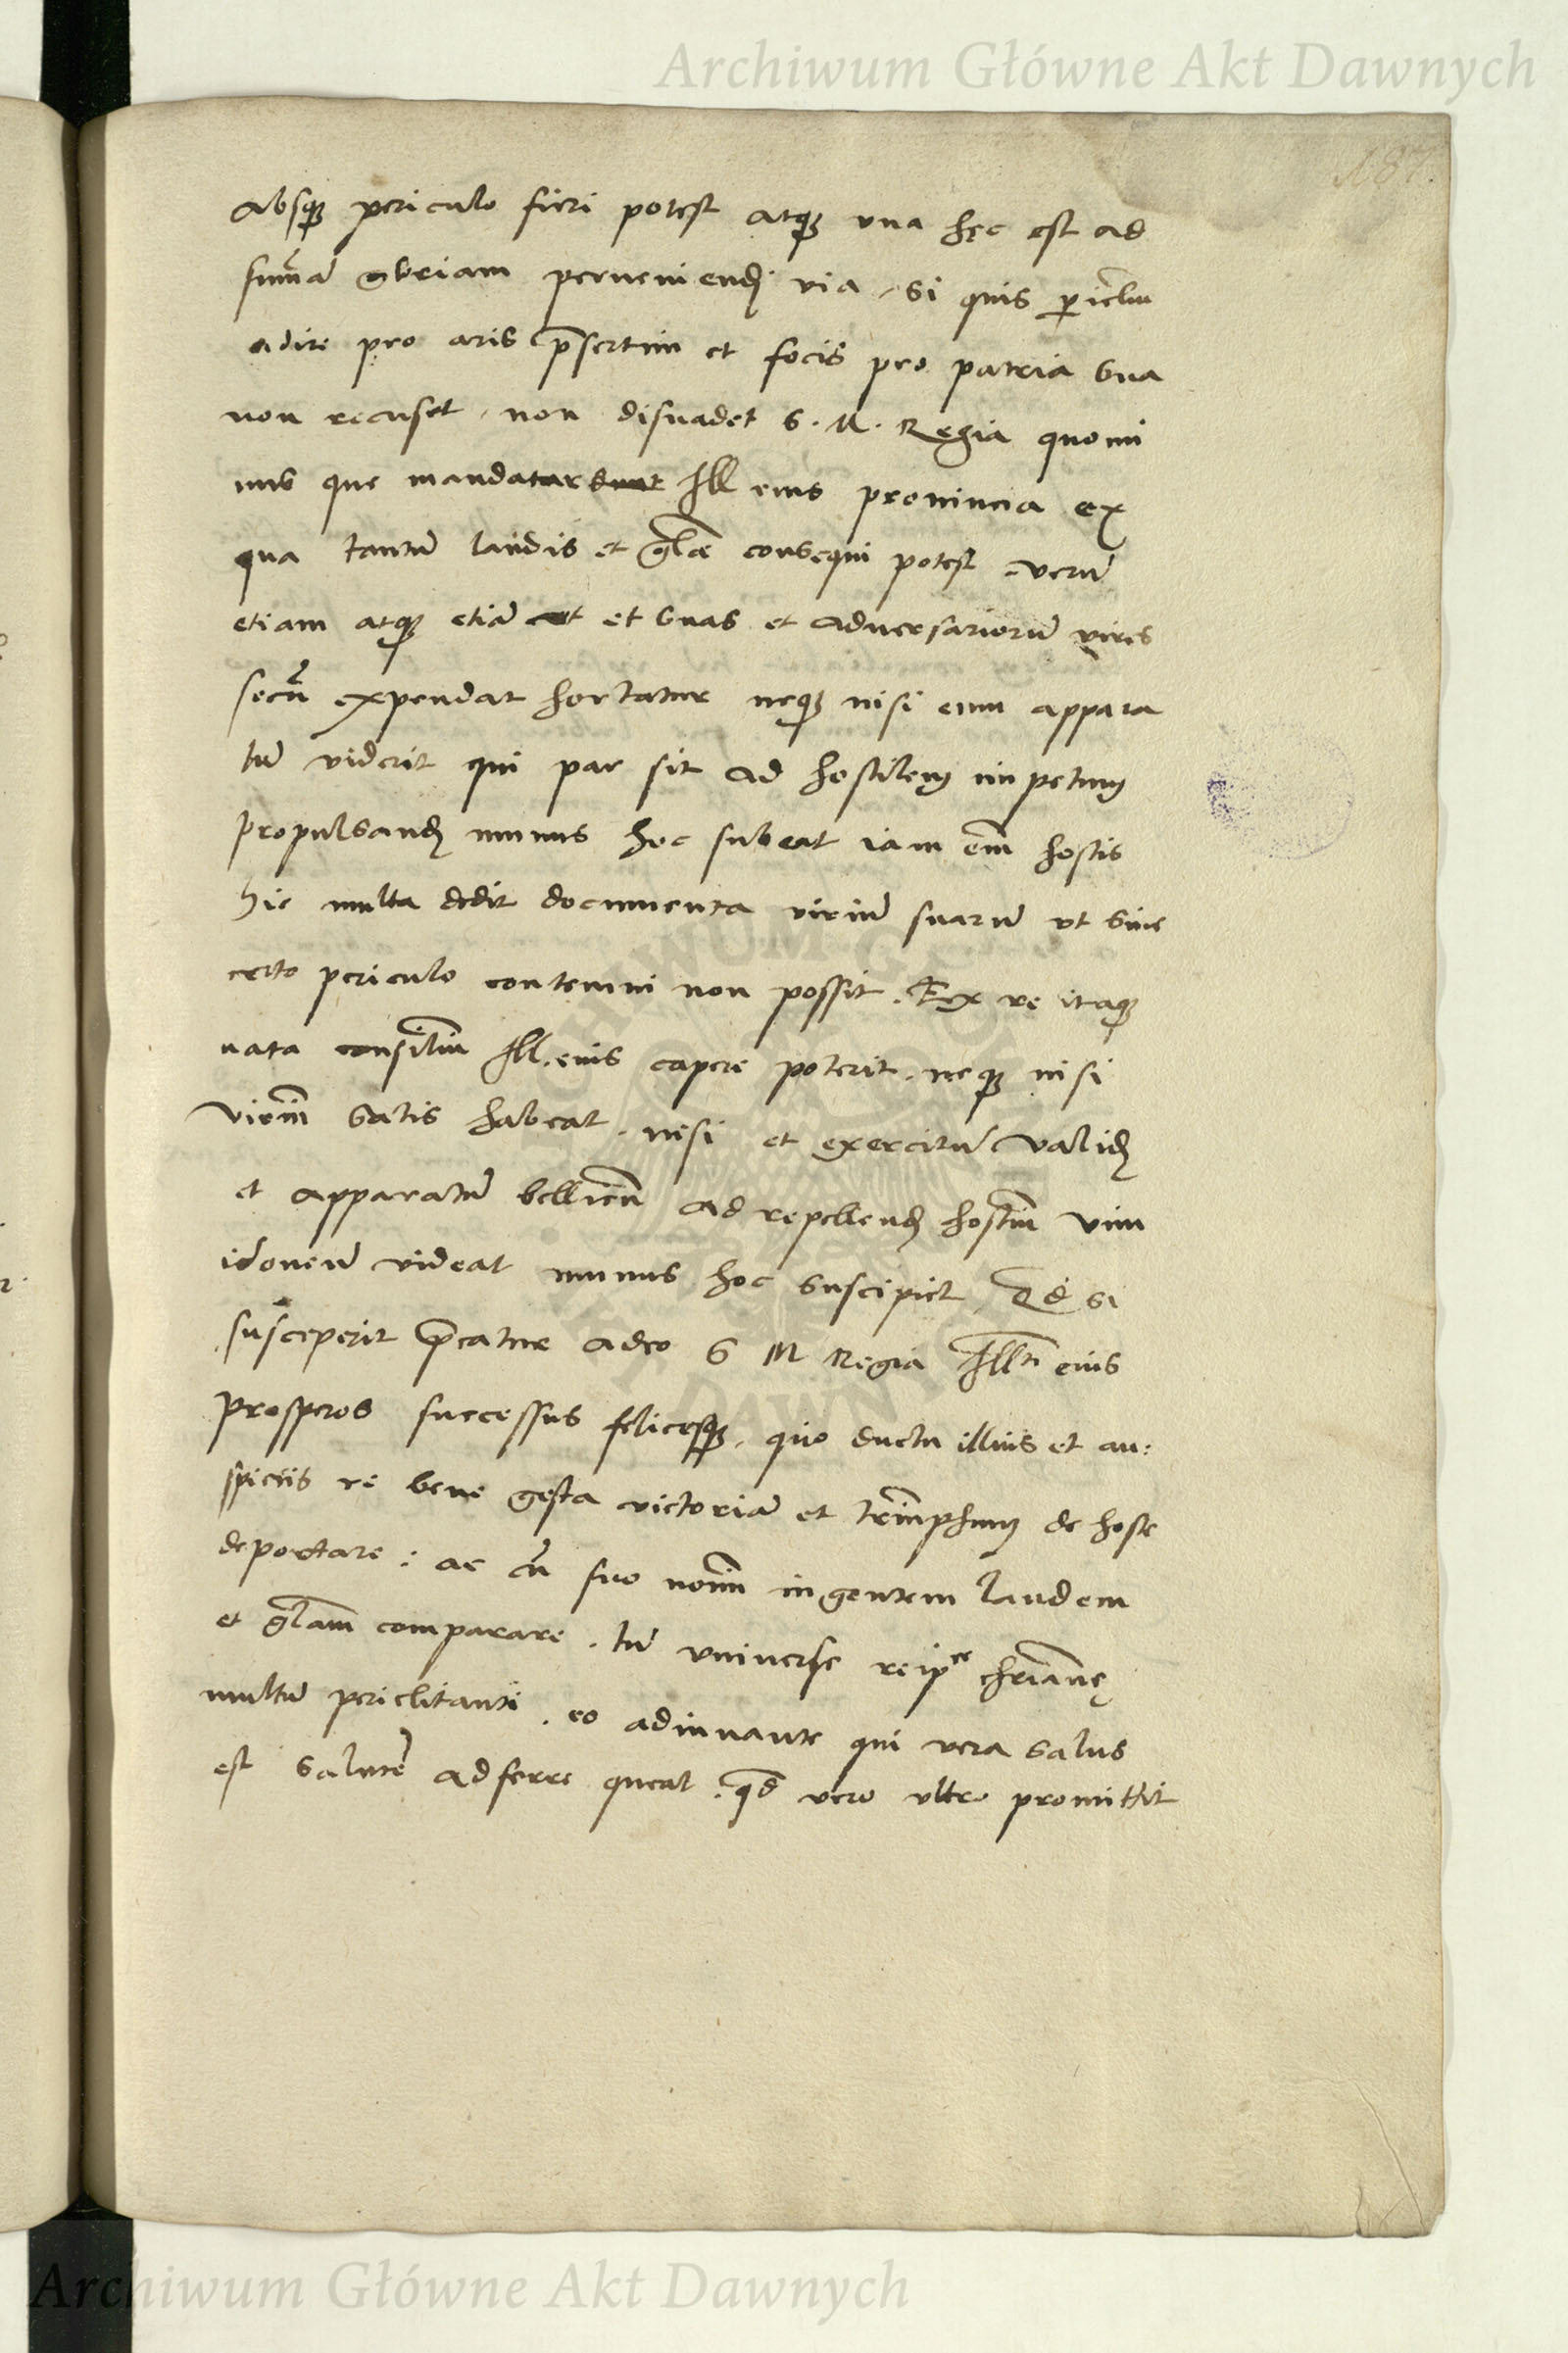 Archiwum Główne Akt Dawnych
187.
absq periculo fieri potest atq una hęc est ad
sum̃ã gloriam perveniend via, si quis periclm
adire pro aris p̃sertim et focis pro patria sua
non recuset, non disuadet S. M. Regia quomi
nus que mandatar Ill eius provincia ex
qua tantũ laudis et gl̃ae consequi potest, verũ
etiam atq etiã et suas et adversariorũ vires
secũ expendat hortatur neq nisi eum appara
tũ viderit qui par sit ad hostilem impetum
propulsand munus hoc subeat iam em̃ hostis
hic multa dedit documenta viriũ suarũ ut sine
certo periculo contemni non possit. Ex re itaq
nata consiliũ Ill. eius capere poterit, neq nisi
virium̃ satis habeat, nisi et exercitũ valid
et apparatũ bellicũ ad repellend hostiũ vim
idoneũ videat munus hoc suscipiet, Qd si
susceperit p̃catur a deo S M Regia Illti eius
prosperos successus felicesq, quo ductu illius et au:
spiciis re bene gesta victoriã et triũphum de hoste
deportare: ac cũ suo nomĩ ingentem laudem
et gl̃am comparare, tũ universe reipce chr̃ianę
multũ periclitanti, eo adiuvante qui vera salus
est salutẽ adferre queat, qd̃ vero ultro promittit
Archiwum Główne Akt Dawnych